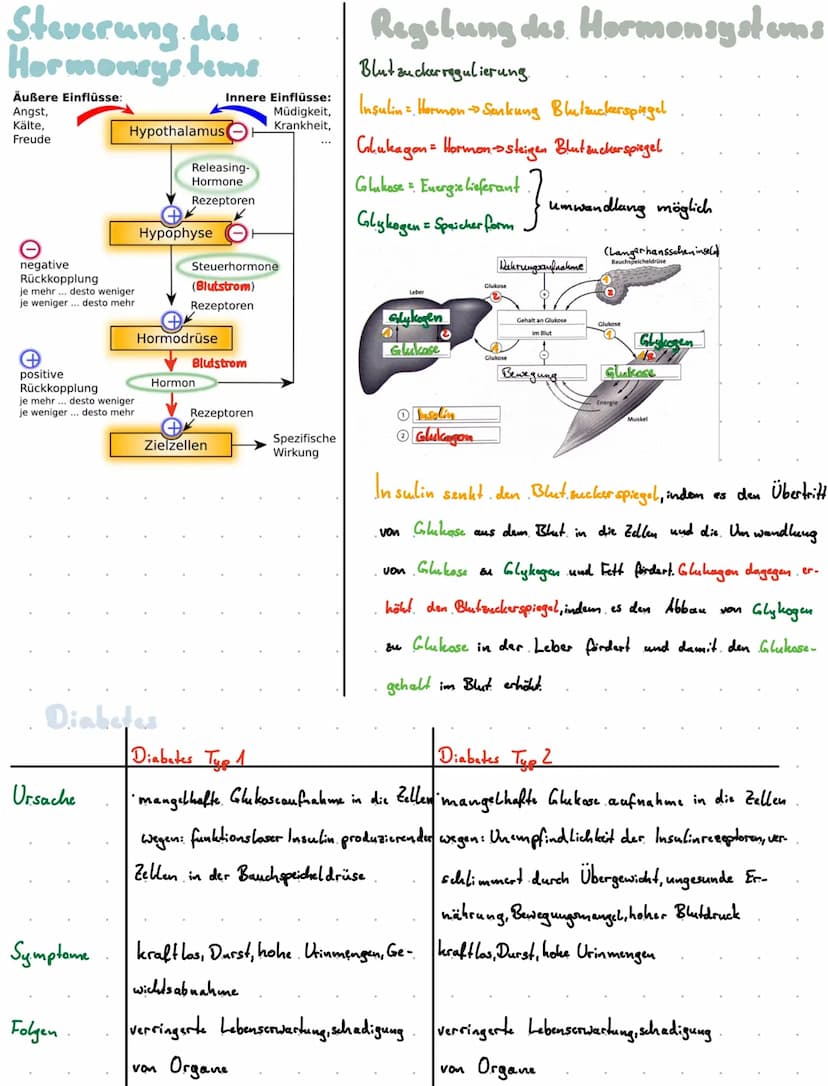 Steuerung des
Hormonsystems
Äußere Einflüsse:
Angst,
Kälte,
Freude
Innere Einflüsse:
Müdigkeit,
Krankheit,
...
Hypothalamus
Releasing-
Hormone
Rezeptoren
Hypophyse
negative
Rückkopplung
je mehr ... desto weniger
je weniger ... desto mehr
Steuerhormone
(Blutstrom)
Rezeptoren
Hormodrüse
Blutstrom
positive
Rückkopplung
je mehr ... desto weniger
je weniger ... desto mehr
Hormon
Rezeptoren
Zielzellen
Spezifische
Wirkung
Regelung des Hormonsystems
Blutzuckerregulierung
Insulin = Hormon → Senkung Blutzuckerspiegel
Glukagon = Hormon → steigen Blutzuckerspiegel
Glukose = Energielieferant
Glykogen = Speicherform
umwandlung möglich
(Langerhansscheninseln)
Bauchspeicheldrüse
Nahrungsaufnahme
Leber
Glukose
2
1
2
Glykogen
1 2
Glukose
Gehalt an Glukose
im Blut
Glukose
1
Glykogen
1/2
Glukose
1
Glukose
Bewegung
Energie
Muskel
1 Insulin
2 Glukagon
Insulin senkt den Blutzuckerspiegel, indem es den Übertritt
von Glukose aus dem Blut in die Zellen und die Umwandlung
von Glukose zu Glykogen und Fett fördert. Glukagon dagegen er-
höht den Blutzuckerspiegel, indem es den Abbau von Glykogen
zu Glukose in der Leber fördert und damit den Glukose-
gehalt im Blut erhöht.
Diabetes
Diabetes Typ 1
Diabetes Typ 2
Ursache
· mangelhafte Glukoseaufnahme in die Zellen
wegen: funktionsloser Insulin produzierender
Zellen in der Bauchspeicheldrüse
· mangelhafte Glukose aufnahme in die Zellen
wegen: Unempfindlichkeit der Insulinrezeptoren, ver-
schlimmert durch Übergewicht, ungesunde Er-
nährung, Bewegungsmangel, hoher Blutdruck
Symptome
kraftlos, Durst, hohe Urinmengen, Ge-
wichtsabnahme
kraftlos, Durst, hohe Urinmengen
Folgen
verringerte Lebenserwartung, schadigung
von Organe
verringerte Lebenserwartung, schadigung
von Organe